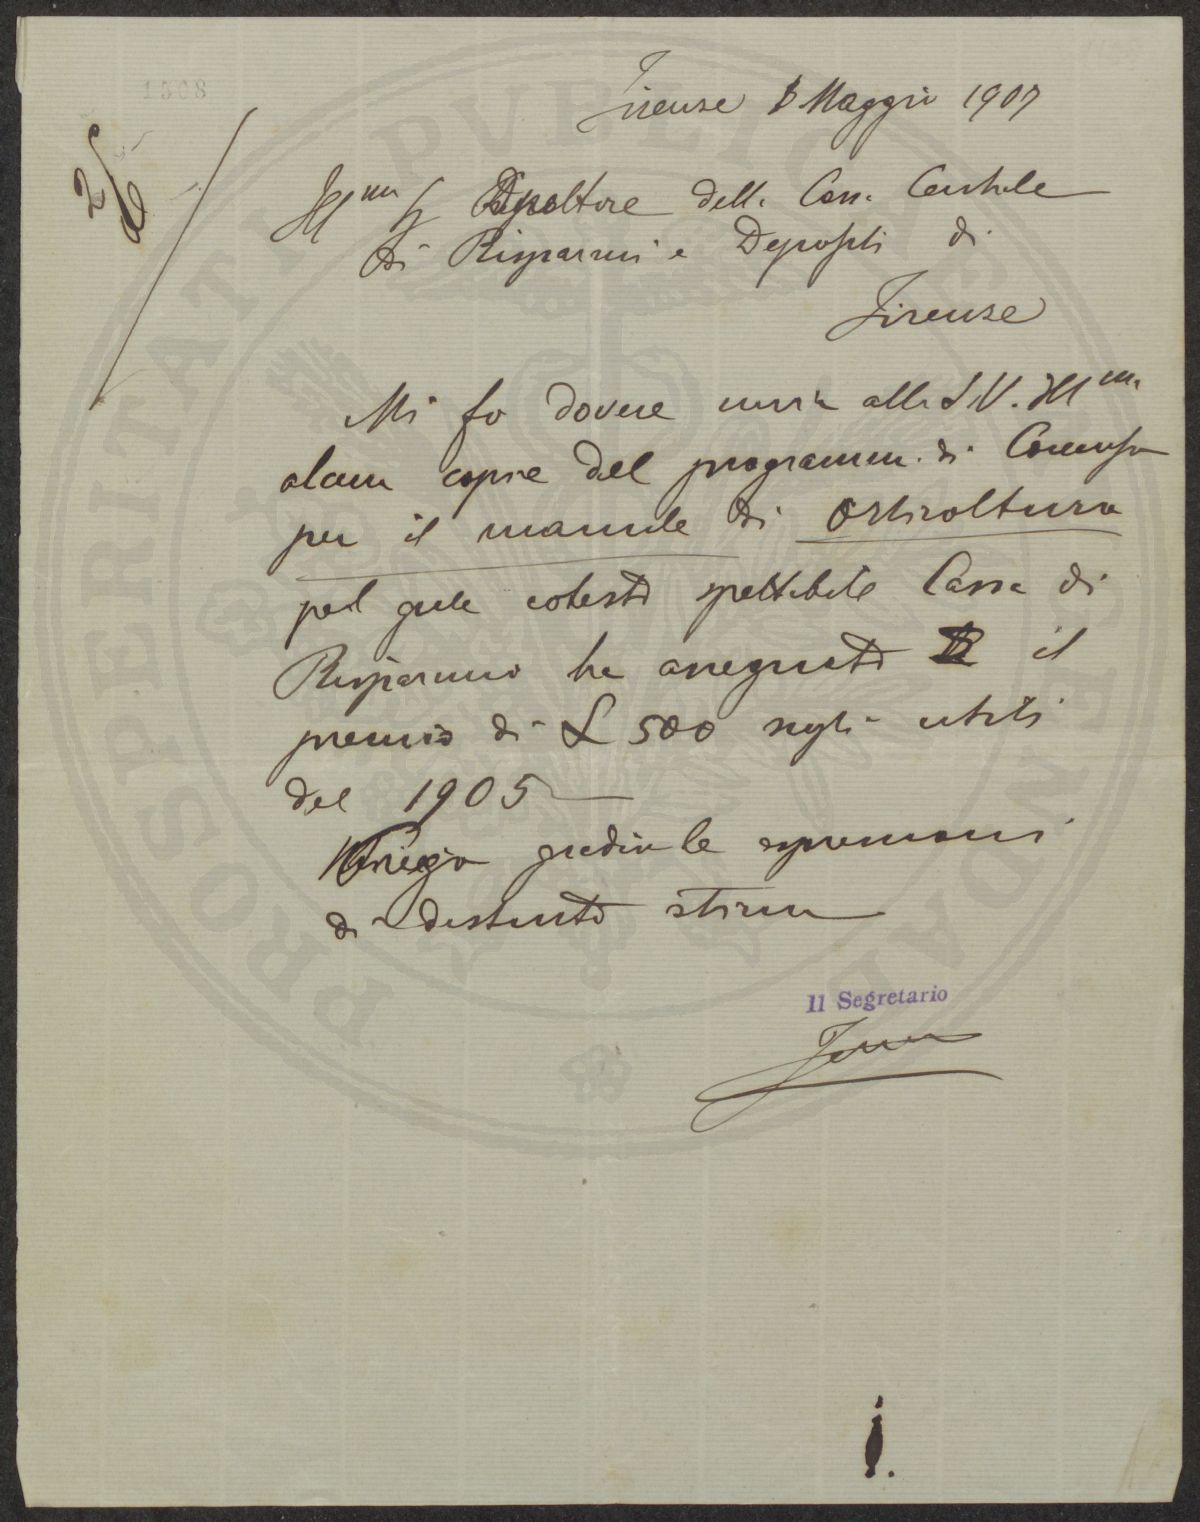 1508
Firenze 8 Maggio 1907
Ill.mo Sig. Direttore della Cassa Centrale
di Risparmi e Depositi di
Firenze
Mi fo dovere inviare alla S.V. Ill.ma
alcune copie del programma di Concorso
per il manuale di Orticoltura
pel quale cotesta spettabile Cassa di
Risparmio ha assegnato il
premio di £ 500 sugli utili
del 1905
Prego gradire le espressioni
di distinta stima
Il Segretario